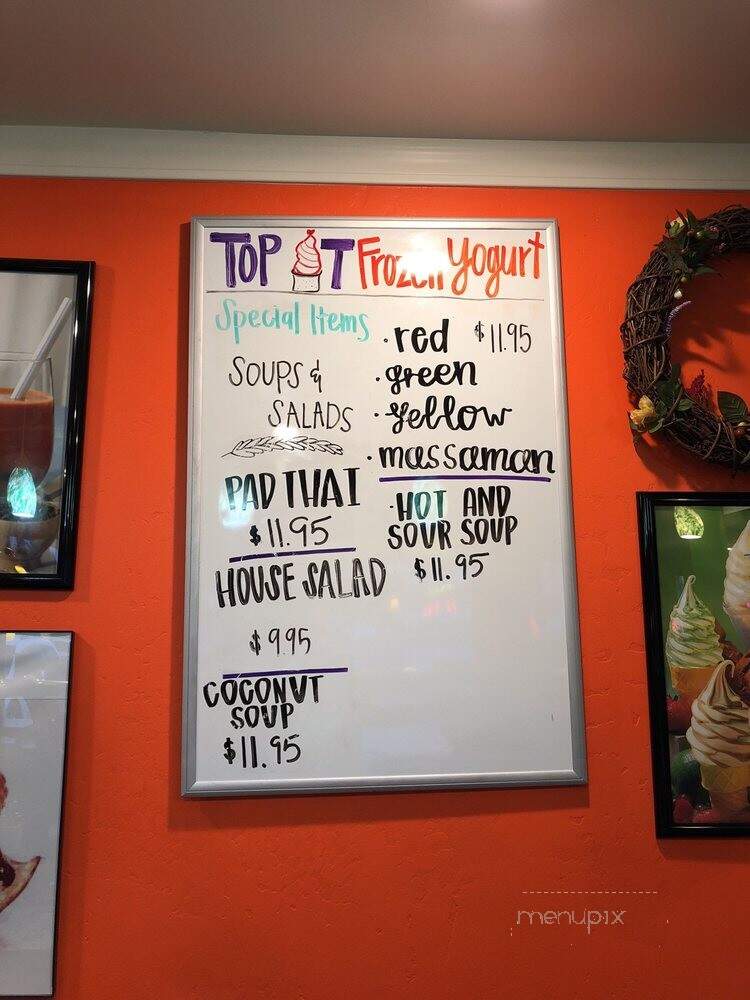 TOP IT Frozen Yogurt
Special Items
SOUPS &
SALADS
PAD THAI
$11.95
HOUSE SALAD
$9.95
COCONUT
SOUP
$11.95
· red $11.95
· green
· yellow
· massaman
· HOT AND
SOUR SOUP
$11.95
menupix